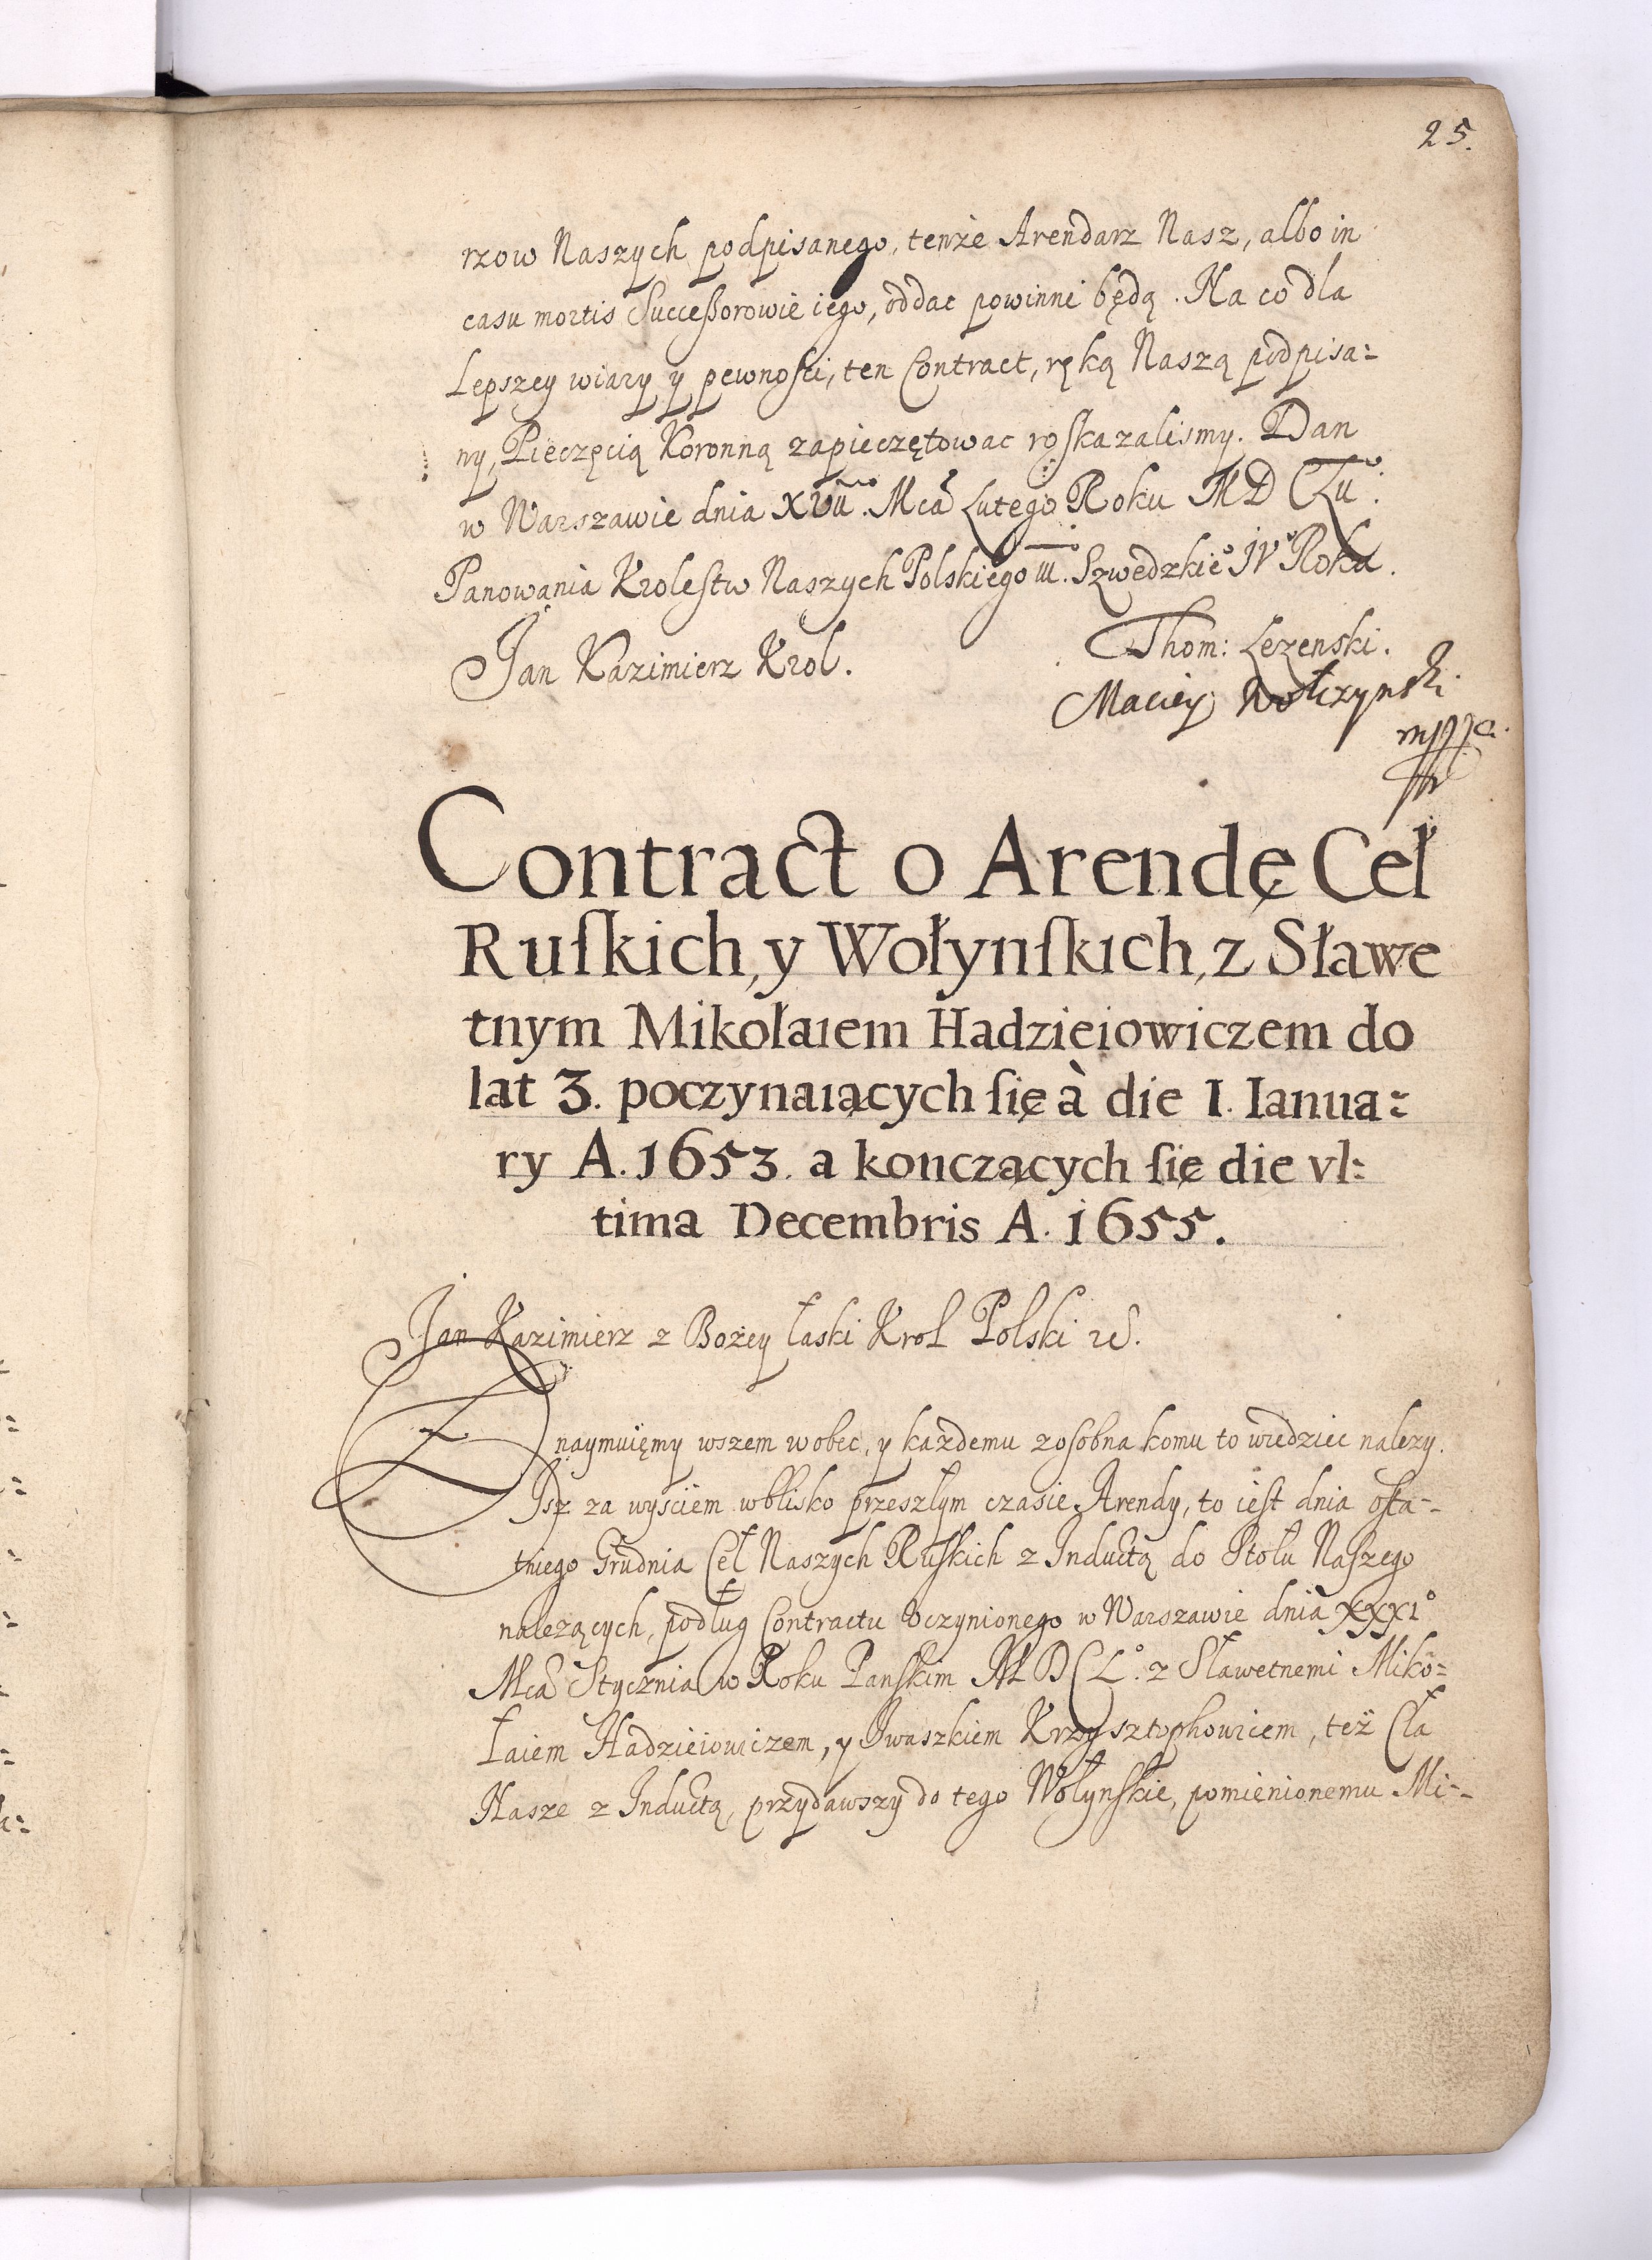 25.
rzow Naszych podpisanego, tenże Arendarz Nasz, albo in
casu mortis Successorowie iego, oddac powinni będą. Na co dla
Lepszey wiary y pewnosci, ten Contract, ręką Naszą podpisa=
ny, Pieczęcią Koronną zapieczętowac roskazalismy. Dan
w Warszawie dnia XVII. Mca Lutego Roku MDCLII.
Panowania Krolestw Naszych Polskiego III. Szwedzkieo IVo Roku.
Jan Kazimierz Krol.
Thom: Lezenski.
Maciey
mppa.
Contract o Arendę Ceł
Ruſkich, y Wołynſkich, z Sławe
tnym Mikołaiem Hadzieiowiczem do
lat 3. poczynaiących ſię à die 1. Ianua=
ry A. 1653. a konczących ſię die vl=
tima Decembris A. 1655.
Jan Kazimierz z Bożey łaski Krol Polski etc.
Znaymuięmy wszem wobec, y każdemu zosobna komu to wiedziec nalezy.
Jsz za wysciem wblisko przeszłym czasie Arendy, to iest dnia osta=
tniego Grudnia Ceł Naszych Ruskich z Inductą do Stołu Naszego
nalezących, podług Contractu uczynionego w Warszawie dnia XXXIo
Mca Stycznia w Roku Panskim MDCLo. z Sławetnemi Miko=
łaiem Hadzieiowiczem, y Iwaszkiem Krzysztophowicem, też Cła
Nasze z Inductą, przydawszy do tego Wołynskie, pomienionemu Mi=